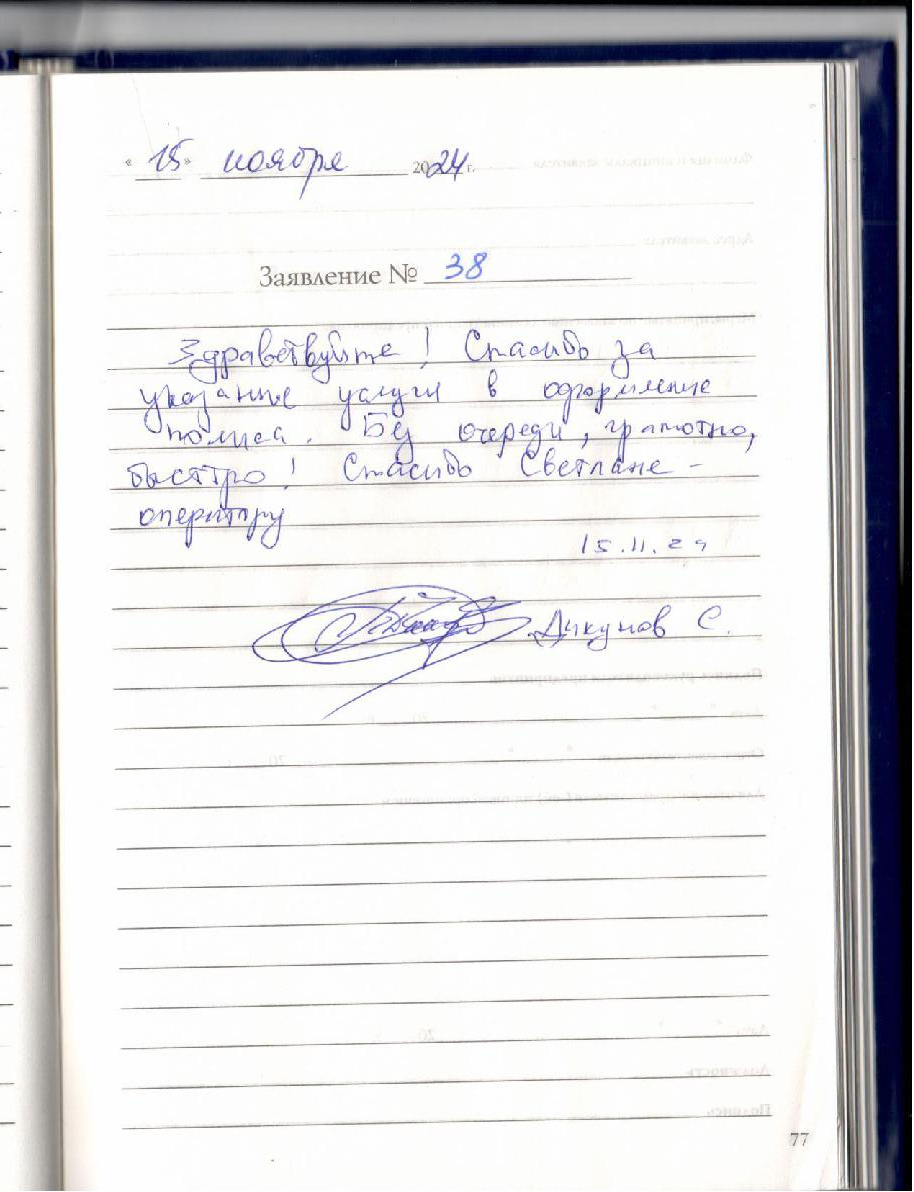 « 15 » ноября 2024 г.
Заявление № 38
Здравствуйте! Спасибо за
указание услуги в оформление
полиса. Без очереди, грамотно,
быстро! Спасибо Светлане –
оператору
15.11.24
Дикунов С.
77